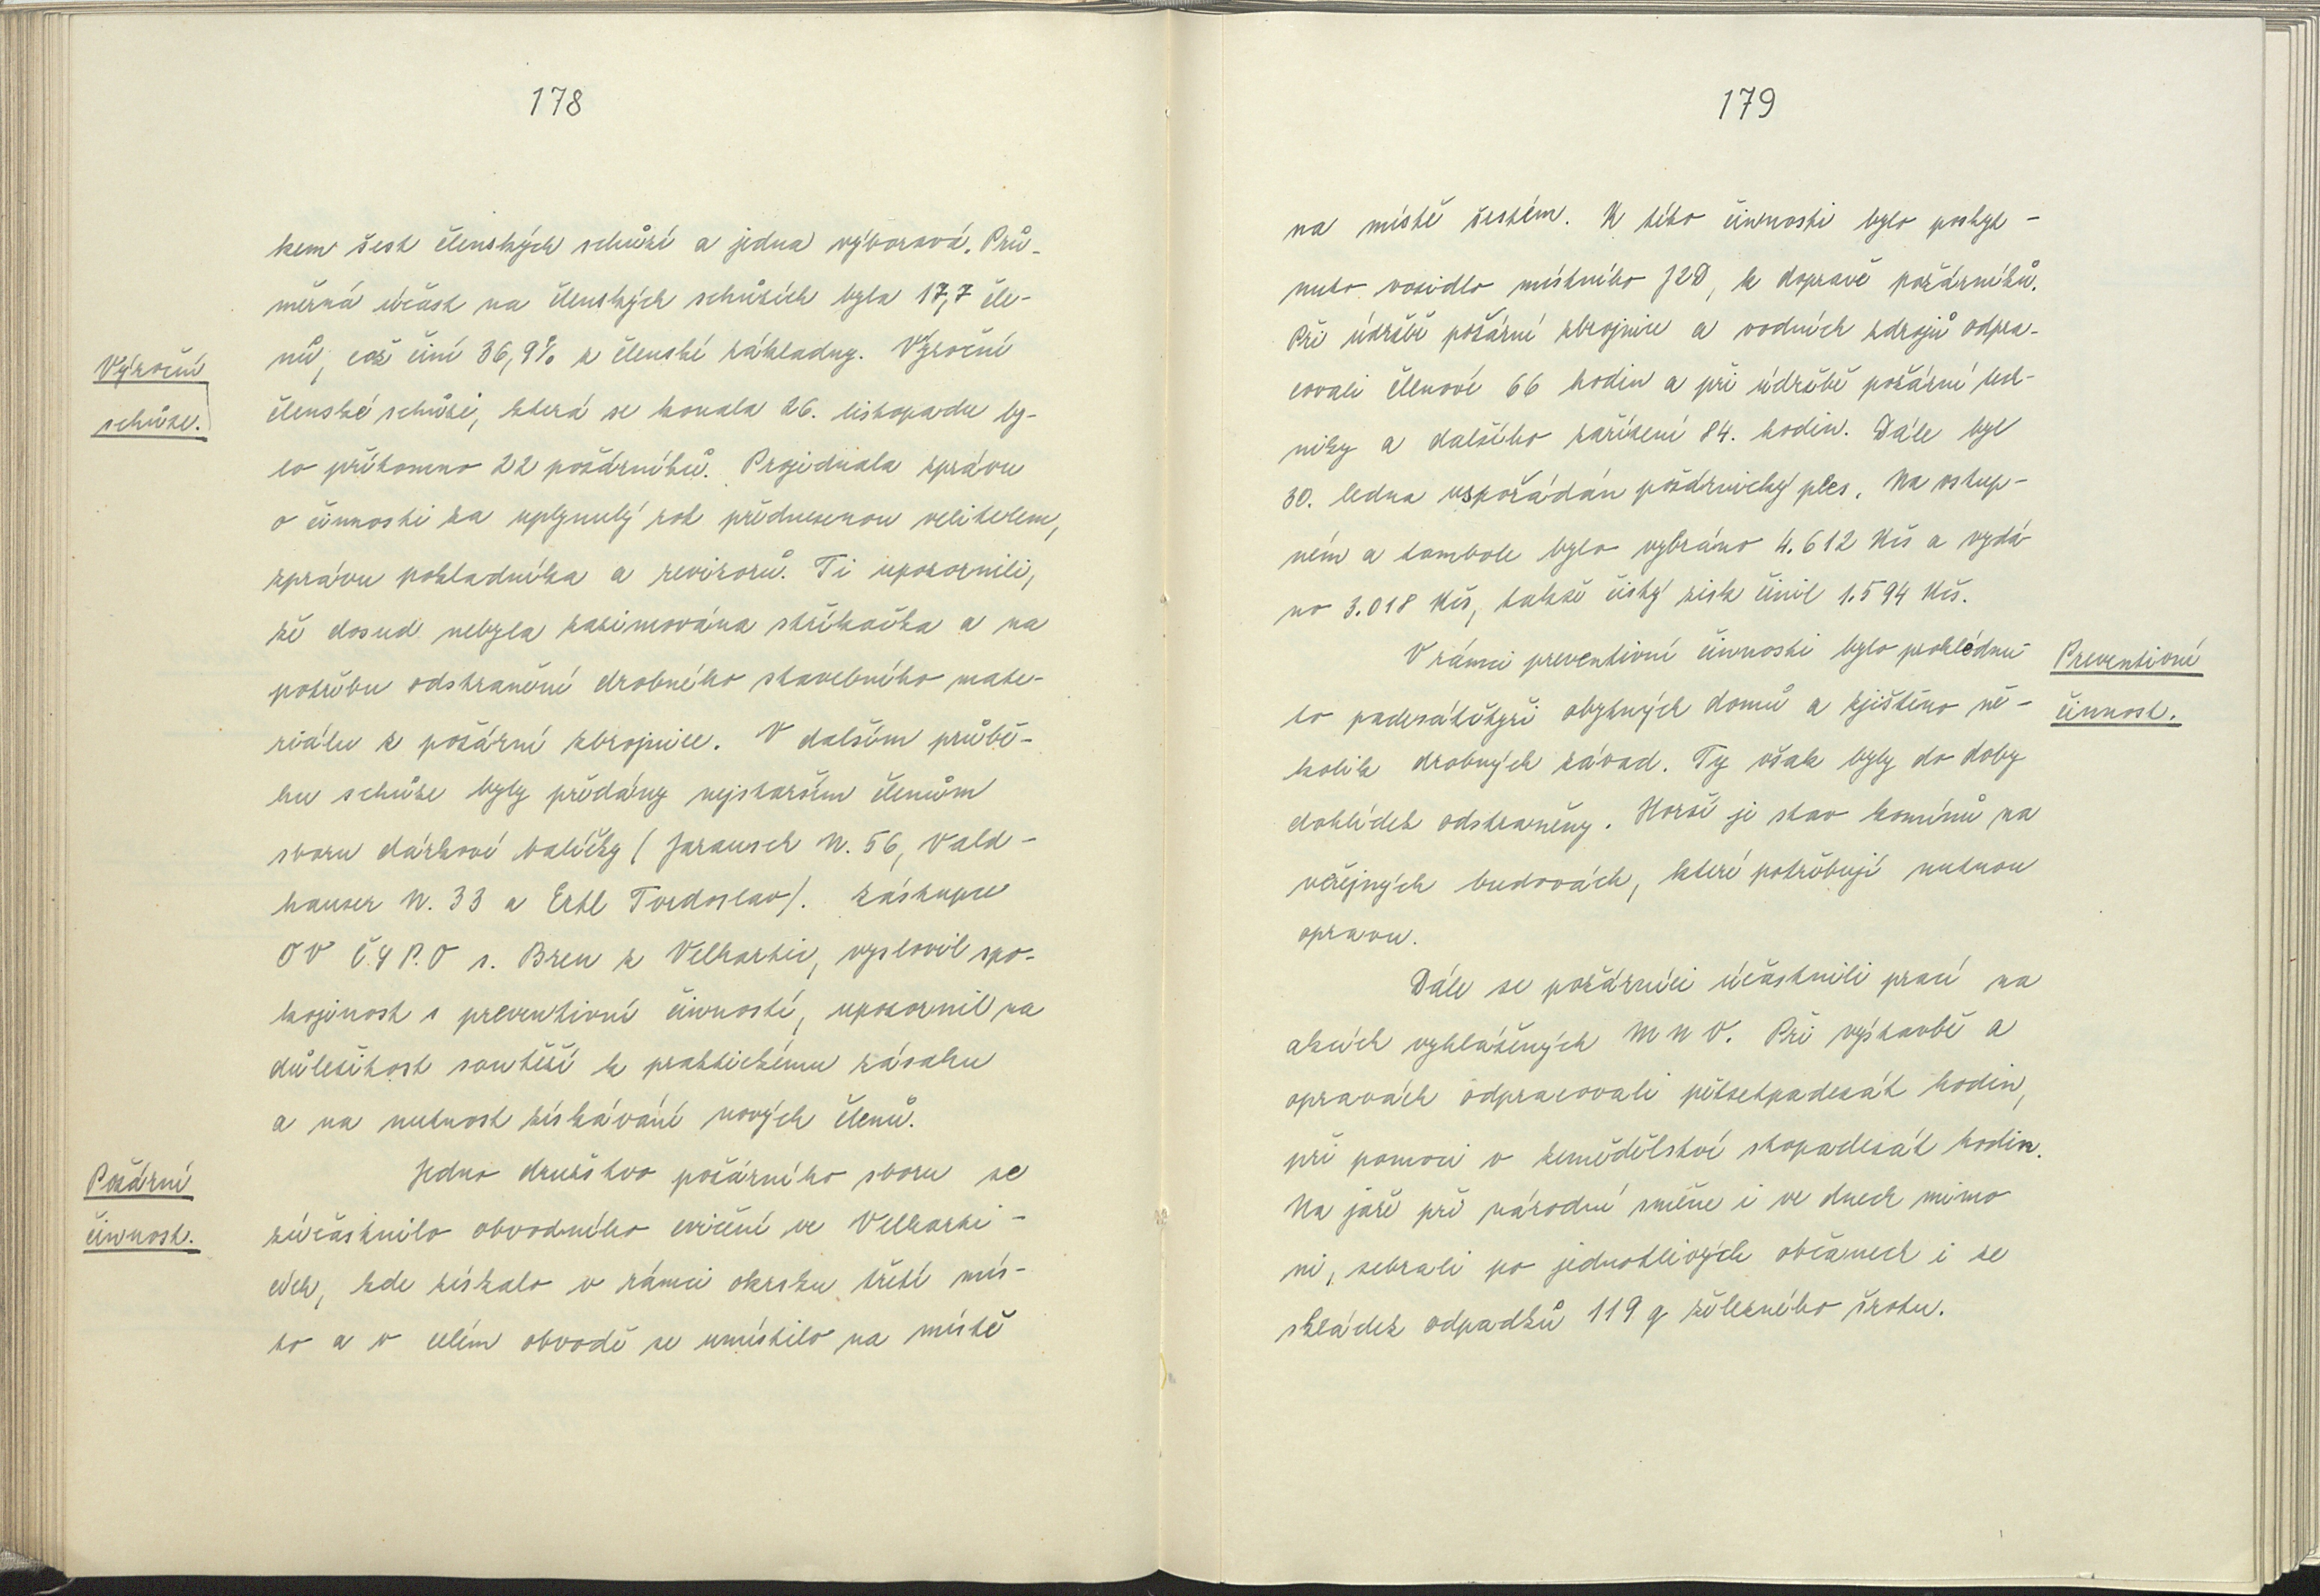 178
kem šest členských schůzí a jedna výborová. Prů-
měrná účast na členských schůzích byla 17,7 čle-
nů, což činí 36,9% z členské základny. Výroční
Výroční
schůze.
členské schůzi, která se konala 26. listopadu by-
lo přítomno 22 požárníků. Projednala zprávu
o činnosti za uplynulý rok přednesenou velitelem,
zprávu pokladníka a revizorů. Ti upozornili,
že dosud nebyla zazimována stříkačka a na
potřebu odstranění drobného stavebního mate-
riálu z požární zbrojnice. V dalším průbě-
hu schůze byly předány nejstarším členům
sboru dárkové balíčky (Jarausch N. 56, Vald-
hauser N. 33 a Ertl Tvrdoslav). Zástupce
OV Č.S P.O s. Breu z Velhartic, vyslovil spo-
kojenost s preventivní činností, upozornil na
důležitost soutěží k praktickému zásahu
a na nutnost získávání nových členů.
Požární
činnost.
Jedno družstvo požárního sboru se
zúčastnilo obvodního cvičení ve Velharti-
cích, kde získalo v rámci okrsku třetí mís-
to a v celém obvodě se umístilo na místě
179
na místě šestém. K této činnosti bylo poskyt-
nuto vozidlo místního JZD, k dopravě požárníků.
Při údržbě požární zbrojnice a vodních zdrojů odpra-
covali členové 66 hodin a při údržbě požární tech-
niky a dalšího zařízení 84. hodin. Dále byl
30. ledna uspořádán požárnický ples. Na vstup-
ném a tombole bylo vybráno 4.612 Kčs a vydá-
no 3.018 Kčs, takže čistý zisk činil 1.594 Kčs.
Preventivní
činnost.
V rámci preventivní činnosti bylo prohlédnu-
to padesátčtyři obytných domů a zjištěno ně-
kolik drobných závad. Ty však byly do doby
dohlídek odstraněny. Horší je stav komínů na
veřejných budovách, které potřebují nutnou
opravu.
Dále se požárníci účastnili prací na
akcích vyhlášených M N V. Při výstavbě a
opravách odpracovali pětsetpadesát hodin,
při pomoci v zemědělství stopadesát hodin.
Na jaře při národní směne i ve dnech mimo
ni, sebrali po jednotlivých občanech i ze
skládek odpadků 119 q železného šrotu.